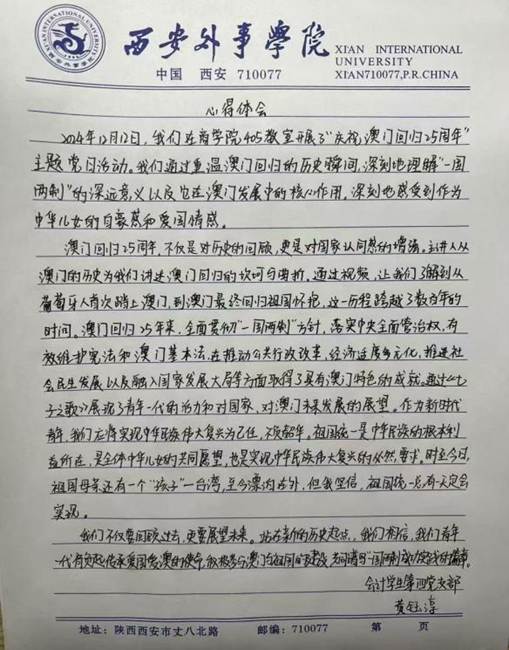 XI'AN INTERNATIONAL UNIVERSITY
西安外事学院
XIAN INTERNATIONAL
UNIVERSITY
中国 西安 710077
XIAN710077,P.R.CHINA
心得体会
2024年12月12日,我们在商学院405教室开展了"庆祝澳门回归25周年"
主题党日活动。我们通过重温澳门回归的历史瞬间,深刻地理解"一国
两制"的深远意义以及它在澳门发展中的核心作用,深刻地感受到作为
中华儿女的自豪感和爱国情感。
澳门回归25周年,不仅是对历史的回顾,更是对国家认同感的增强。主讲人从
澳门的历史为我们讲述澳门回归的坎坷与曲折。通过视频,让我们了解到从
葡萄牙人首次踏上澳门,到澳门最终回归祖国怀抱,这一历程跨越了数百年的
时间。澳门回归25年来,全面贯彻"一国两制"方针,落实中央全面管治权,有
效维护宪法和澳门基本法,在推动公共行政改革,经济适度多元化,推进社
会民生发展,以及融入国家发展大局等方面取得了具有澳门特色的成就。通过《七
子之歌》展现了青年一代的活力和对国家,对澳门未来发展的展望。作为新时代
青年,我们应将实现中华民族伟大复兴为己任,不负韶年。祖国统一是中华民族的根本利
益所在,是全体中华儿女的共同愿望,也是实现中华民族伟大复兴的必然要求。时至今日,
祖国母亲还有一个"孩子"—台湾,至今漂泊在外,但我坚信,祖国统一总有一天定会
实现。
我们不仅要回顾过去,更要展望未来。站在新的历史起点,我们相信,我们青年
一代有负起传承爱国爱澳的使命,积极参与澳门与祖国的建设,
会计学生第四党支部
黄钰淳
地址:陕西西安市丈八北路 邮编:710077 第 页